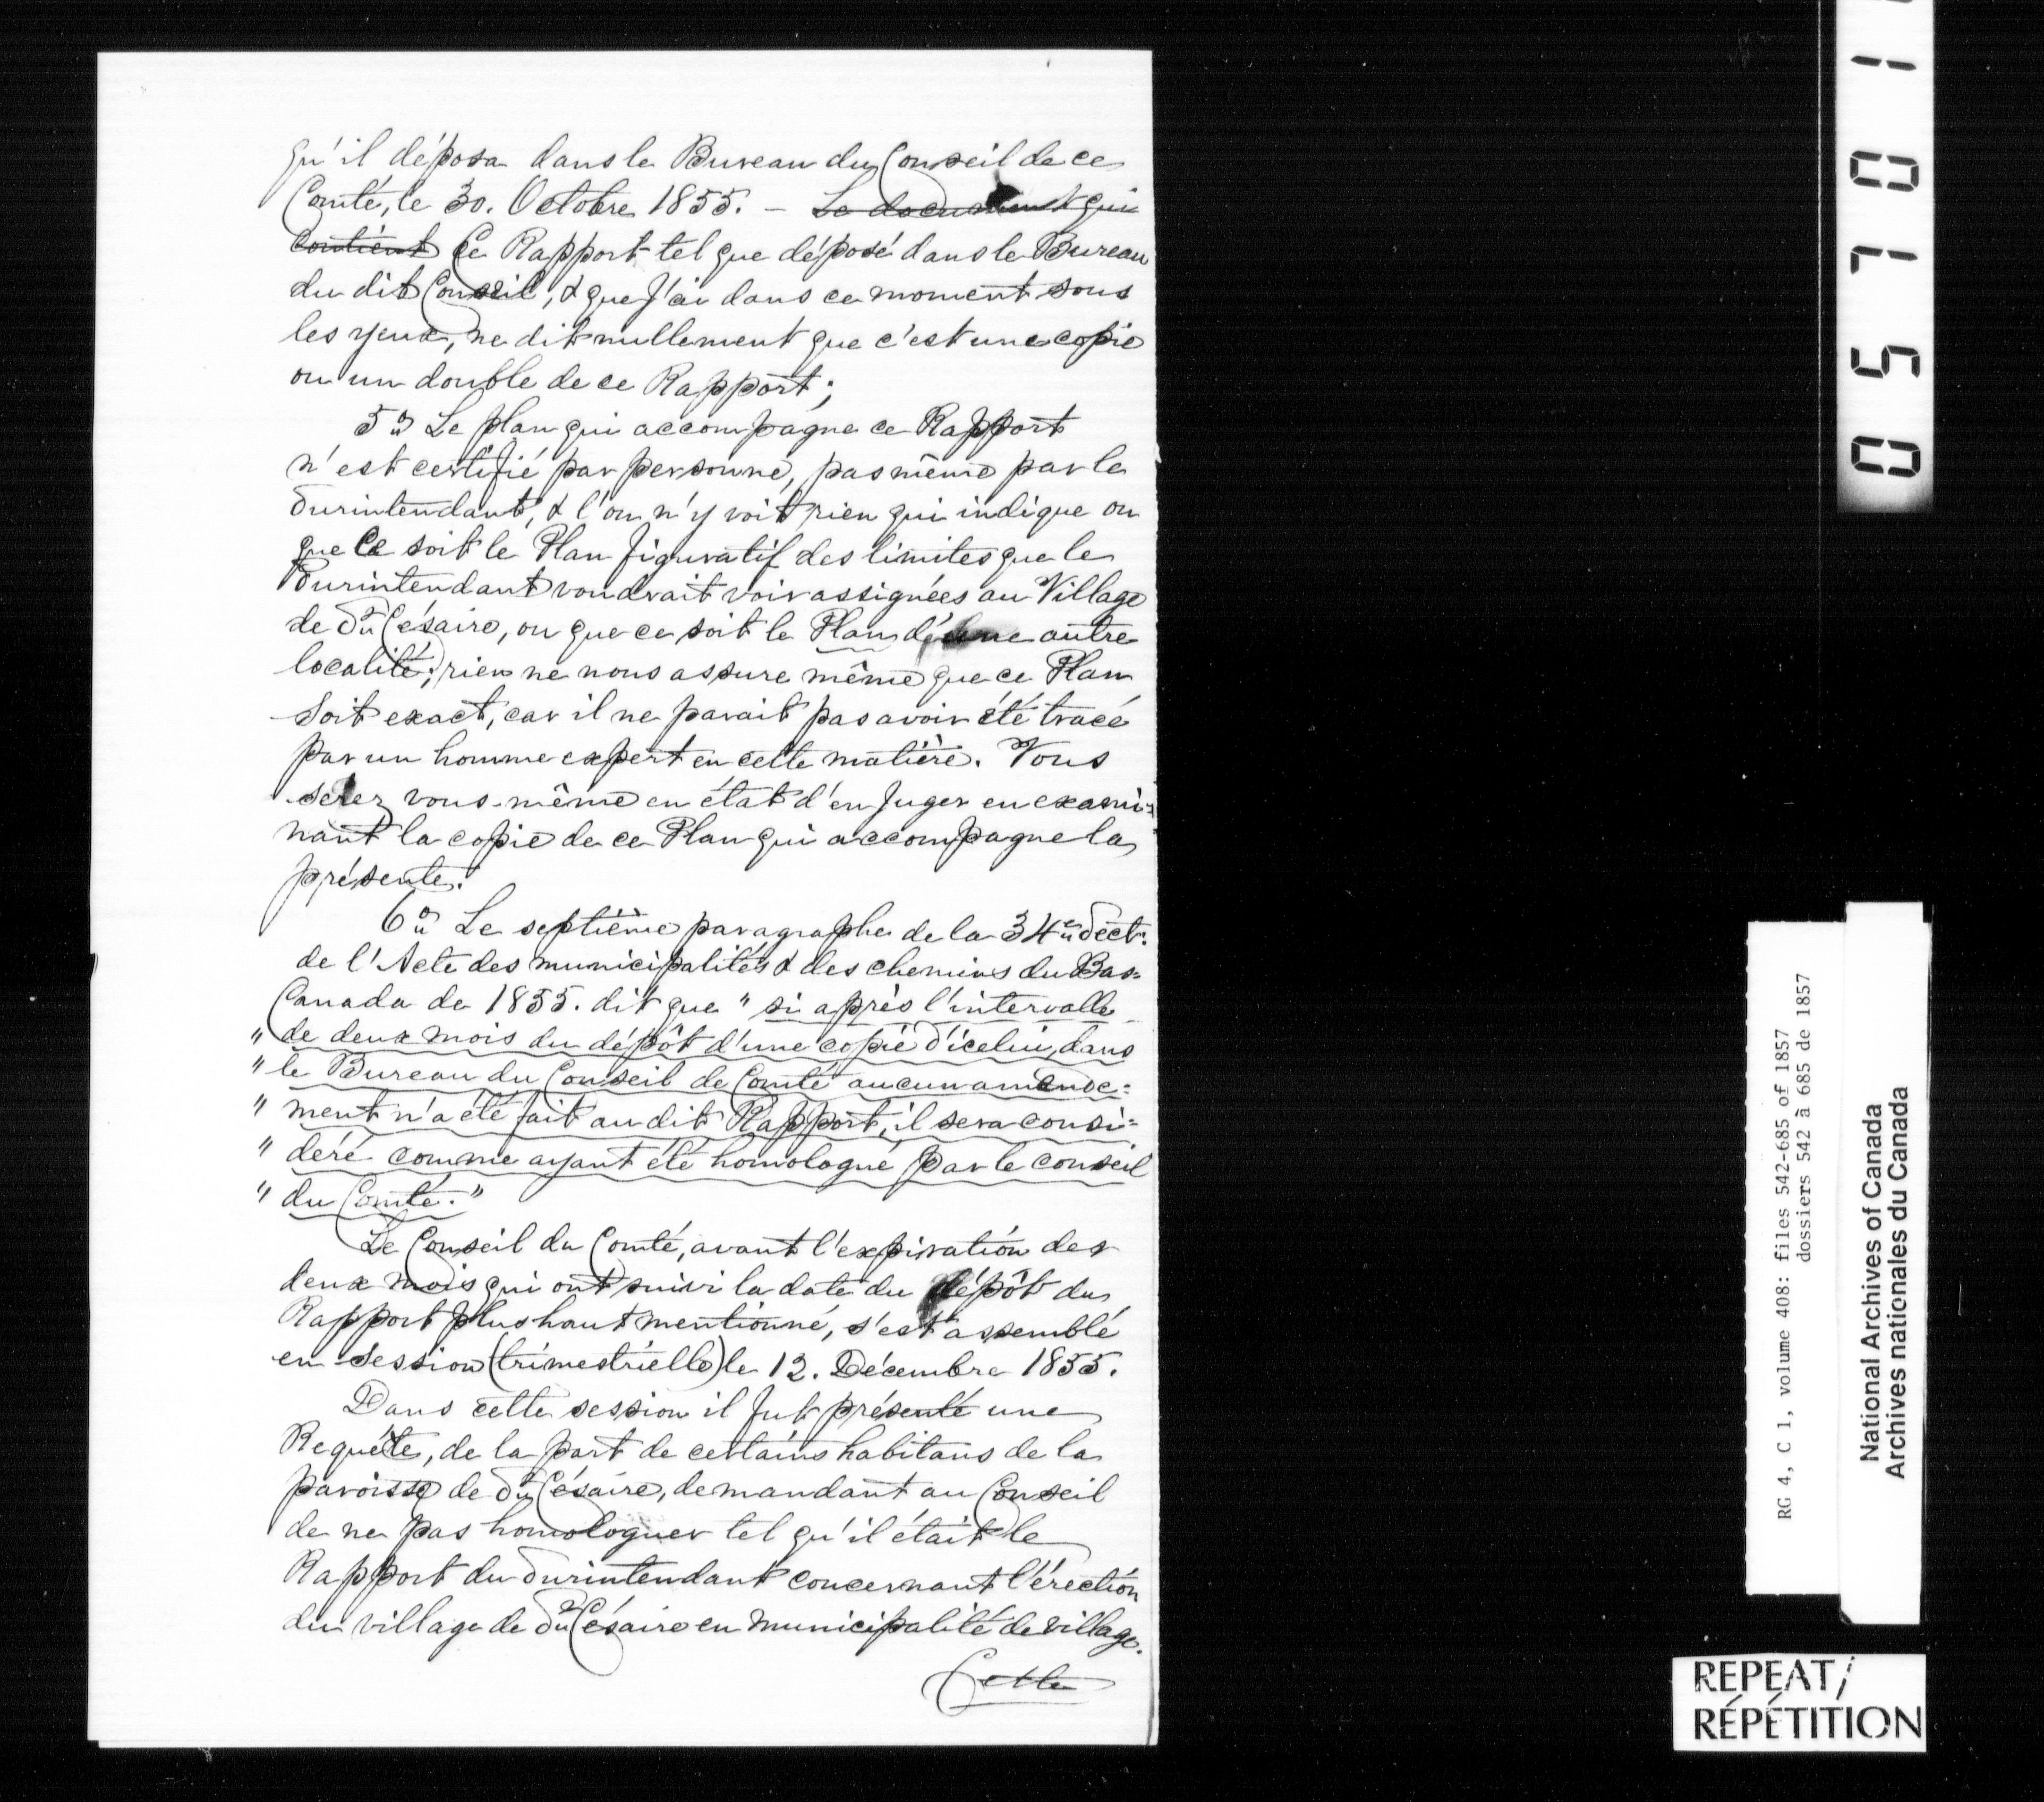 qu'il déposa dans le Bureau du Conseil de ce
Comté, le 30. Octobre 1855. – Le document qui
contient Ce Rapport tel que déposé dans le Bureau
du dit Conseil, & que j'ai dans ce moment sous
les yeux, ne dit nullement que c'est une copie
ou un double de ce Rapport;
5o Le plan qui accompagne ce Rapport
n'est certifié par personne, pas même par le
Surintendant, & l'on n'y voit rien qui indique ou
que ce soit le Plan figuratif des limites que le
Surintendant voudrait voir assignées au Village
de St Césaire, ou que ce soit le Plan d'une autre
localité; rien ne nous assure même que ce Plan
soit exact, car il ne parait pas avoir été tracé
par un homme expert en cette matière. Vous
serez vous-même en état d'en juger en exami-
nant la copie de ce Plan qui accompagne la
présente.
6o Le septième paragraphe de la 34e Sect:
de l'Acte des municipalités & des chemins du Bas-
Canada de 1855. dit que " si après l'intervalle
" de deux mois du dépôt d'une copie d'icelui, dans
" le Bureau du Conseil de Comté aucun amende=
" ment n'a été fait au dit Rapport, il sera consi=
" déré comme ayant été homologué par le conseil
" du Comté."
Le Conseil du Comté, avant l'expiration des
deux mois qui ont suivi la date du dépôt du
Rapport plus haut mentionné, s'est assemblé
en session (trimestrielle) le 12. Décembre 1855.
Dans cette session il fut présenté une
Requête, de la part de certains habitans de la
paroisse de St Césaire, demandant au Conseil
de ne pas homologuer tel qu'il était le
Rapport du Surintendant concernant l'érection
du village de St Césaire en municipalité de village.
Cette
057101
RG 4, C 1, volume 408: files 542-685 of 1857
dossiers 542 à 685 de 1857
National Archives of Canada
Archives nationales du Canada
REPEAT/
RÉPÉTITION